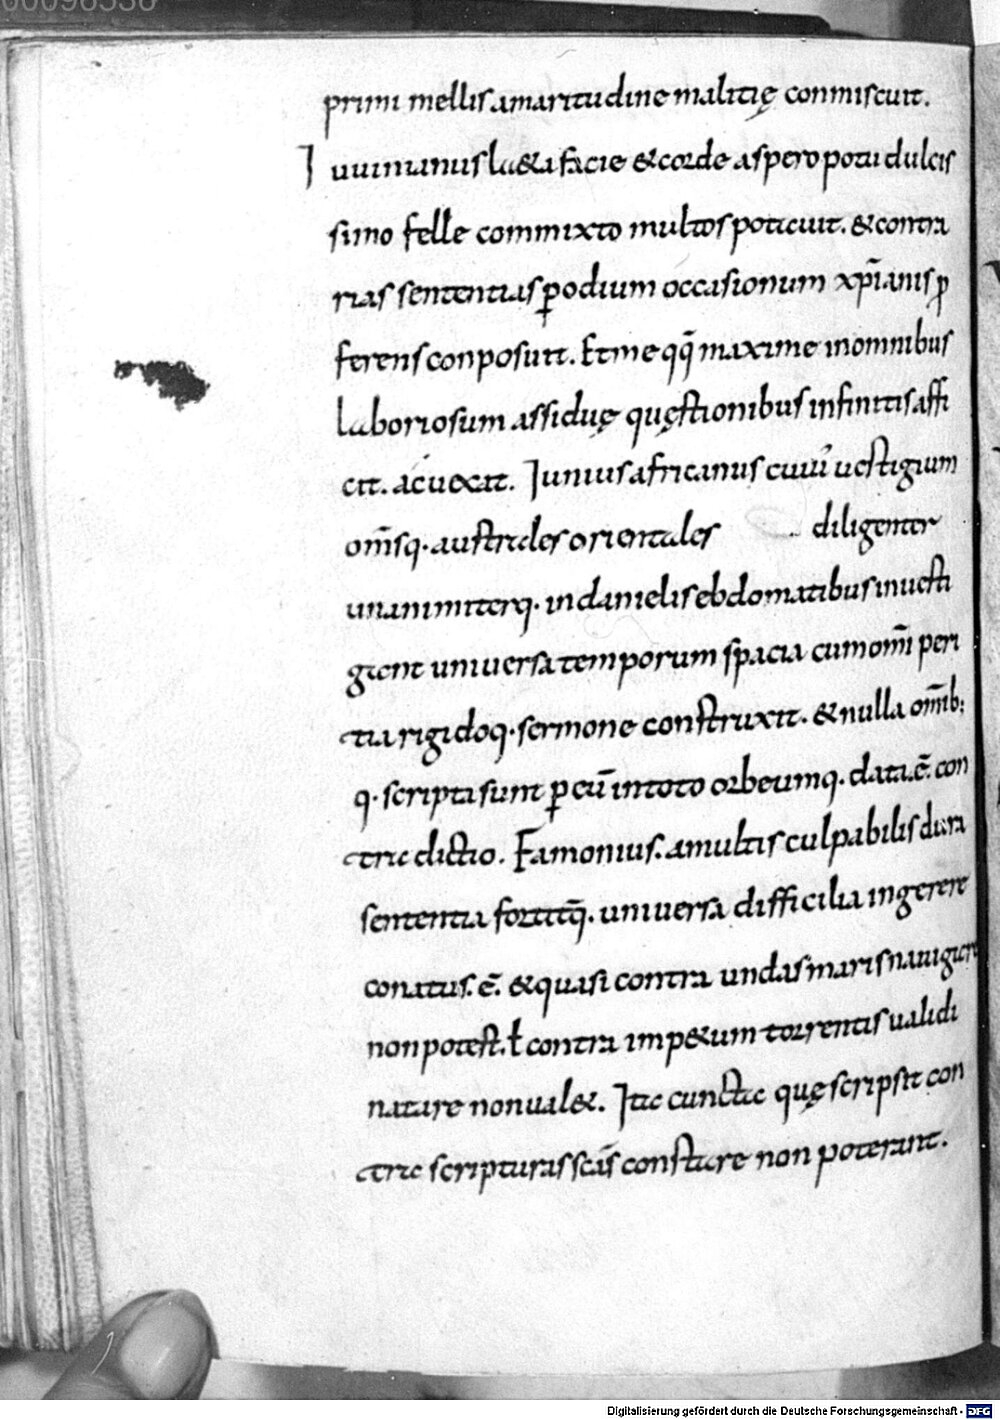 00096530
primi mellis amaritudine malitię conmiscuit.
Iuuinianus læta facie & corde aspero potu dulcis
simo felle commixto multos poticuit. & contra
rias sententias p̱ odium occasionum xp̄ianis ꝓ
ferens conposuit. Et me qq̄ maxime in omnibus
laboriosum assiduę quęstionibus infinitis affi
cit. ac uexat. Iunius africanus cuiū uestigium
om̄sq. australes orientales diligenter
unanimiterq. in danielis ebdomatibus inuesti
gant uniuersa temporum spacia cum om̄i peri
tia rigidoq. sermone construxit. & nulla om̄ib;
q. scripta sunt ꝑ eū in toto orbe umq. data. ē. con
tradictio. Famonius. a multis culpabilis dura
sententia fortitq̄. uniuersa difficilia ingerere
conatus. ē. & quasi contra undas maris nauigare
non potest. ł contra imp&um torrentis ualidi
natare non ual&. Ita cuncta quę scripsit con
tra scripturas scās constare non poterant.
Digitalisierung gefördert durch die Deutsche Forschungsgemeinschaft - DFG